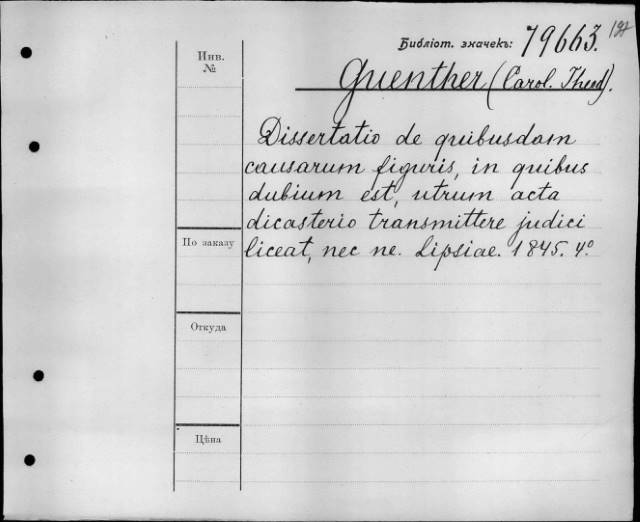 Библіот. значекъ: 79663.
Инв.
№
Guenther (Carol. Theod).
Dissertatio de quibusdam
causarum figuris, in quibus
dubium est, utrum acta
dicasterio transmittere judici
liceat, nec ne. Lipsiae. 1845. 4º
По заказу
Откуда
Цѣна